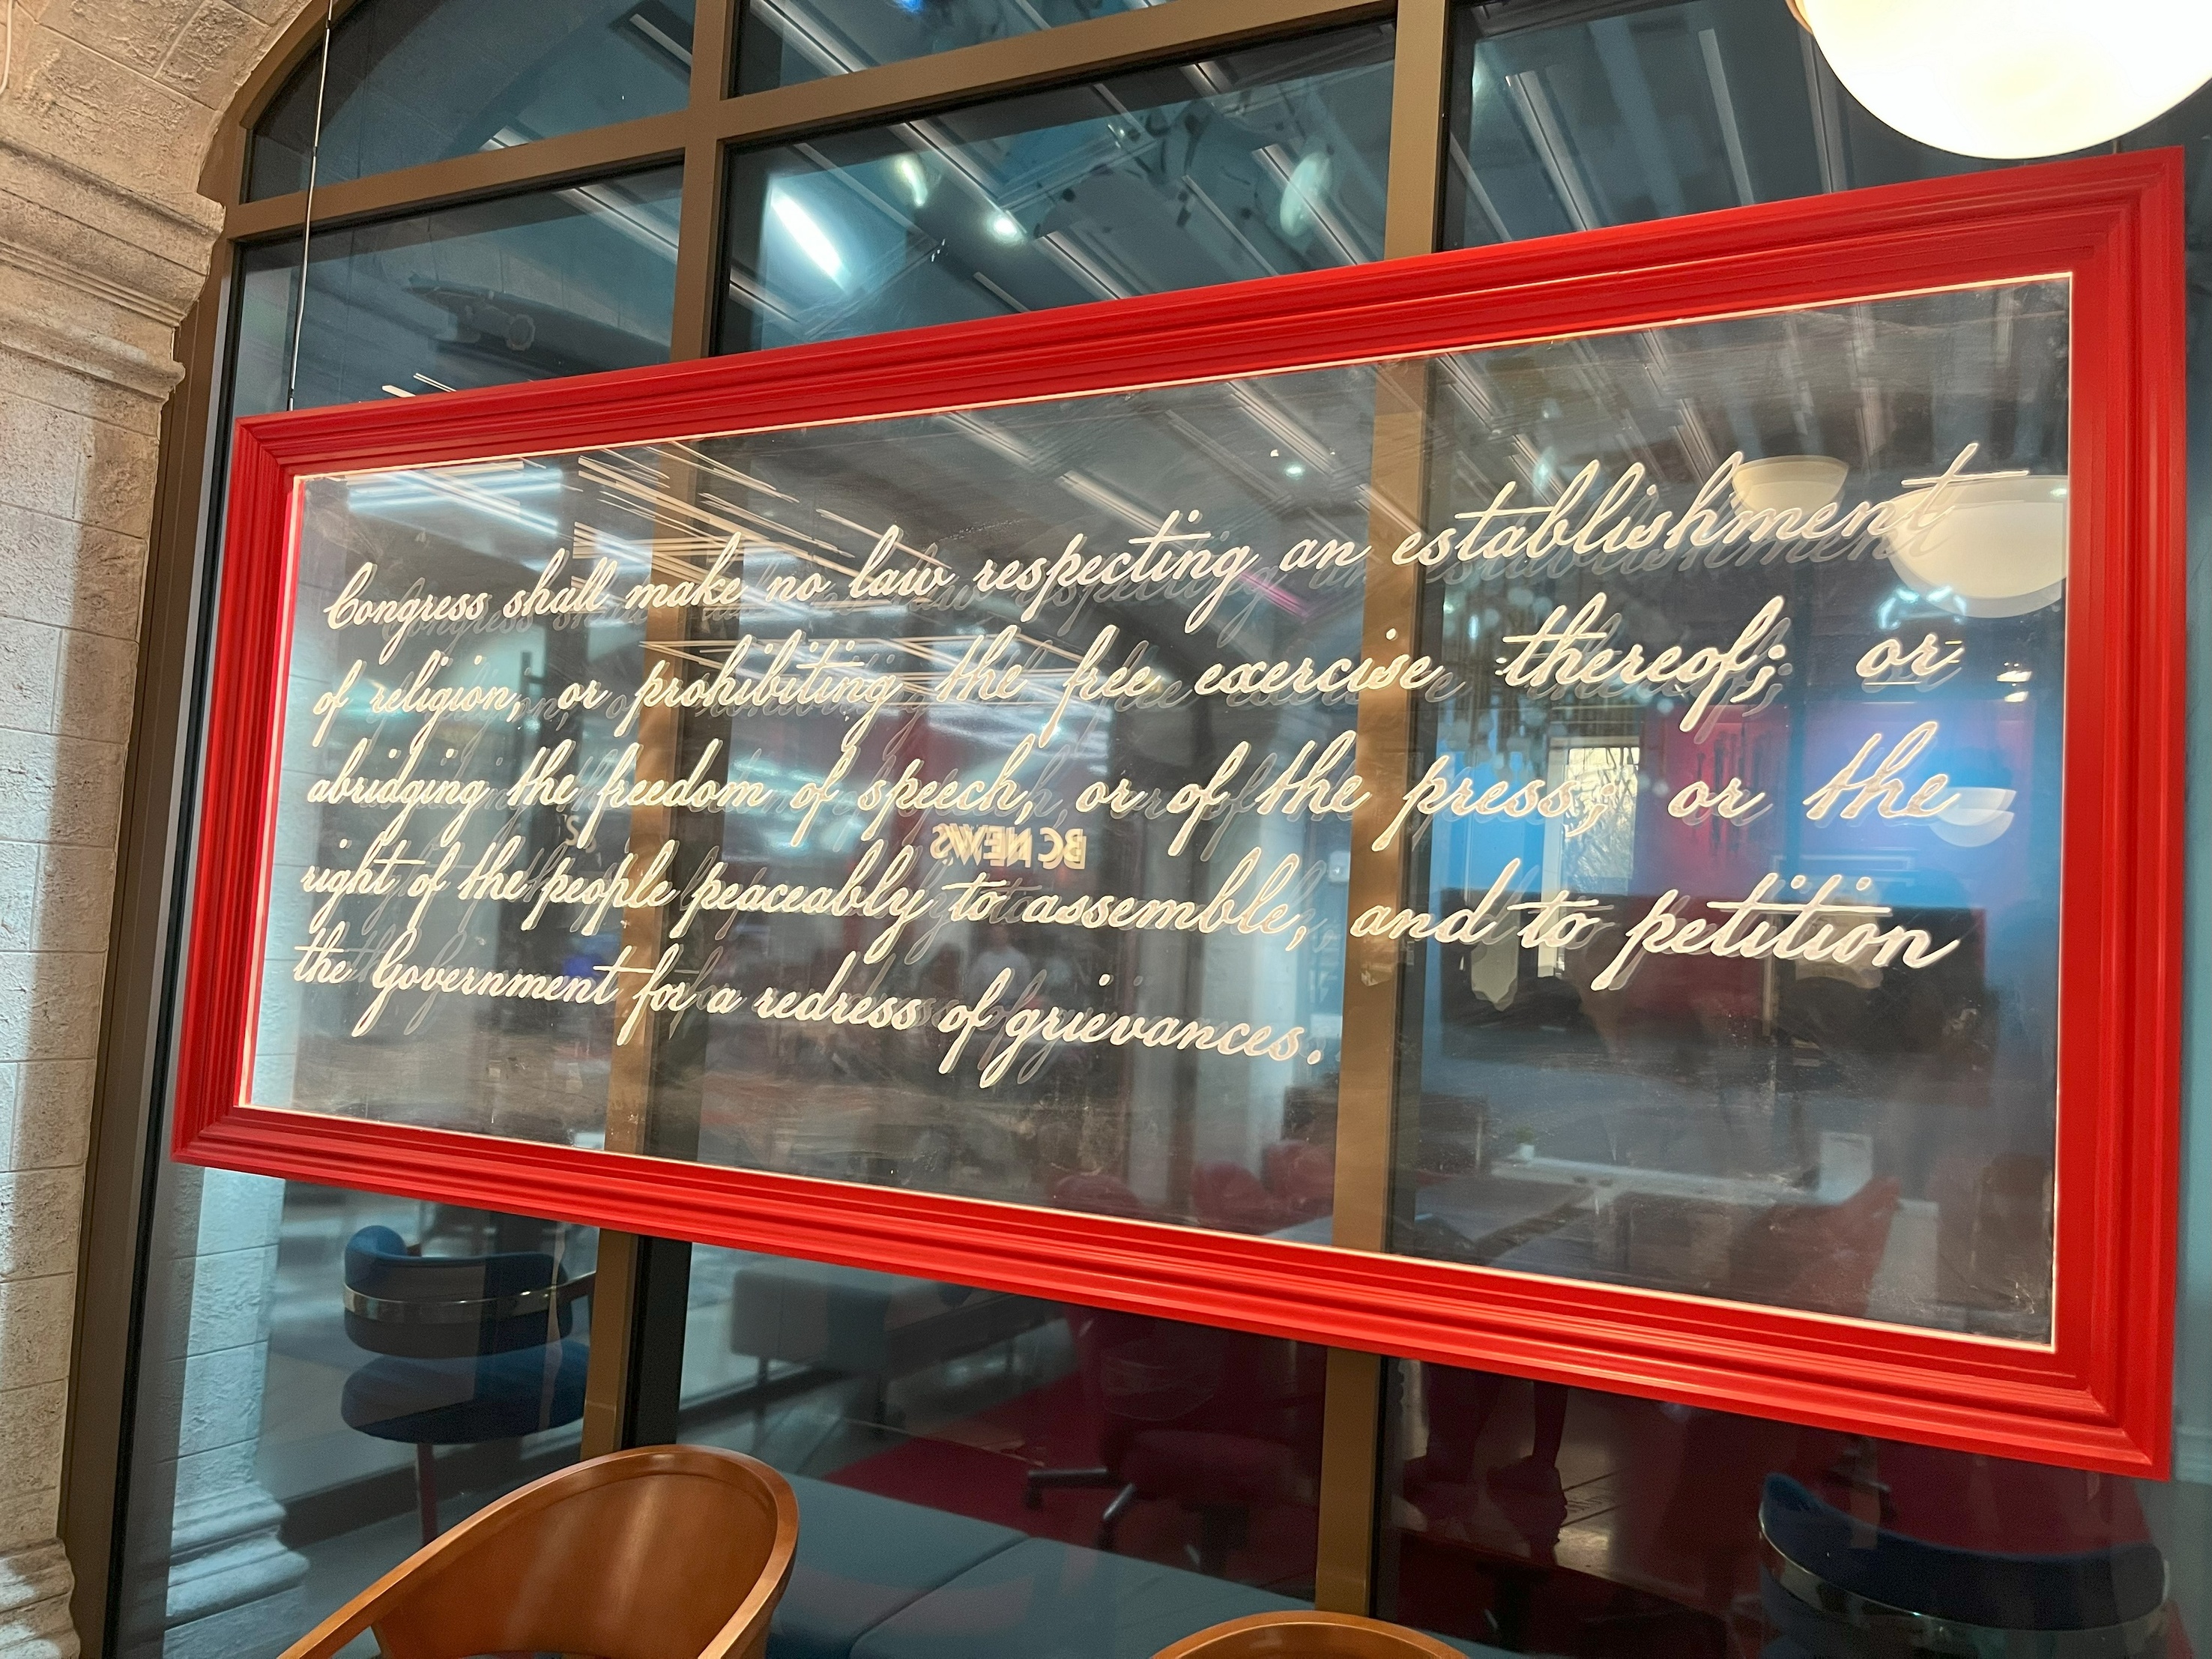 Congress shall make no law respecting an establishment
of religion, or prohibiting the free exercise thereof; or
abridging the freedom of speech, or of the press; or the
right of the people peaceably to assemble, and to petition
the Government for a redress of grievances.
BC NEWS